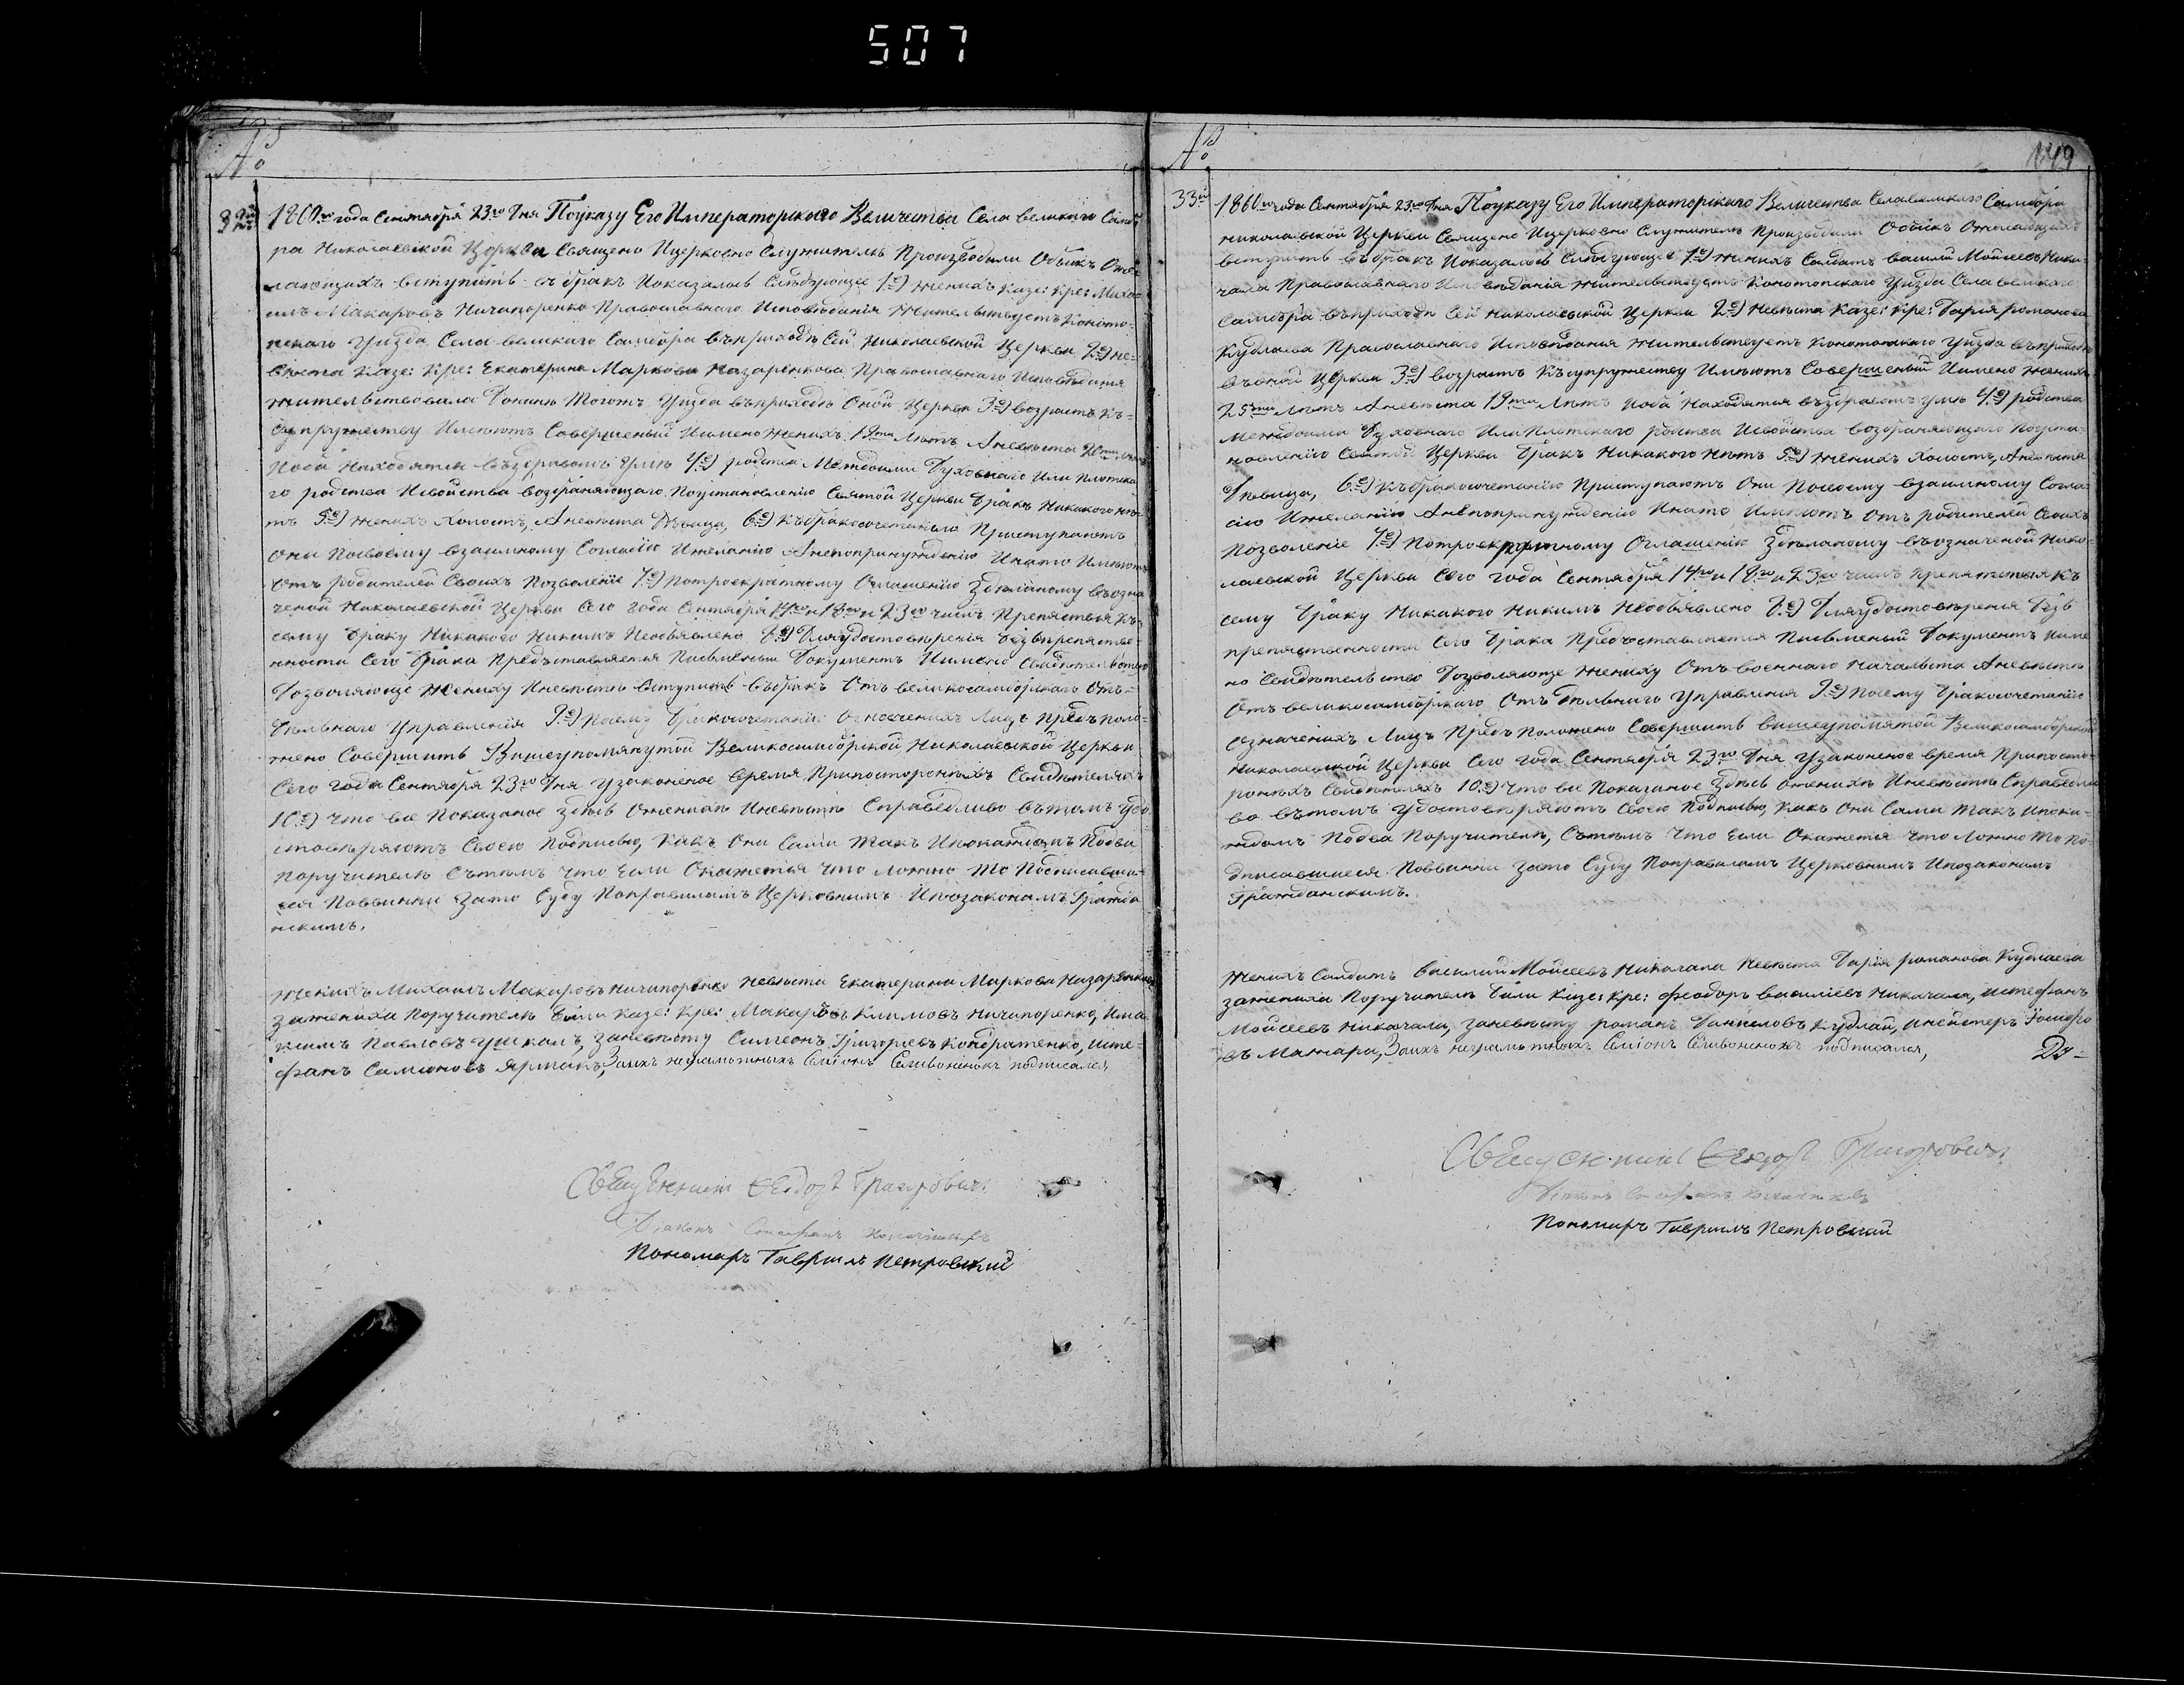 507
№
1860го года Сентября 23го Дня Поуказу Его Императорскаго Величества Села великаго Самбо
ра Николаевской Церкви Священо Ицерковно Служителѣ Производили Обыкъ Оже
лающихъ вступить въ бракъ Ноказалось Слѣдующее 1е) женихъ Казе: Кре: Миха
илъ Макаровъ Ничипоренко Православнаго Исповѣданія Жительствуетъ Коното-
пскаго Уизда Села великаго Самбора въприходѣ Сей Николаевской Церкви 2е) не-
вѣста Казе: Кре: Екатерина Маркова Назаренкова Православнаго Исповѣданія
жительствовала Донинѣ Тогожъ Уизда въприходѣ Оной Церкви 3е) возрастъ Къ-
супружеству Имѣютъ Совершеный Иимено женихъ 19ти Лѣтъ Аневѣста 20ти Лѣтъ
Иоба Находятся въздравомъ Умѣ 4е) родства Между ими Духовнаго Или плотска
го родства Исвойства возбраняющаго Поустановленію Святой Церкви бракъ Никакого нѣ-
тъ 5е) женихъ Холостъ, Аневѣста Дѣвица, 6е) Къбракосочетанію Приступаютъ
Они Посвоему взаимному Согласію Ижеланію Анепопринужденію Инато Имѣютъ
Отъ родителей Своихъ Позволеніе 7е) Потроекратному Оглашенію Здѣланому въозна
ченой Николаевской Церкви Сего года Сентября 14го и 18го и 23го чилъ Препятствія Къ-
сему браку Никакого Никимъ Необъявлено 8е) Дляудостовѣренія безпрепятстве-
нности Сего брака Предъставляется Писменый Документъ Иимено Свидѣтельство
Дозволяюще Жениху Иневѣстѣ вступить въбракъ Отъ великосамборскаго Отъ-
Дѣльнаго Управленія 9е) Посему бракосочетанію Означеныхъ Лицъ Предъ поло-
жено Совершить Вишеупомянутой Великосамборской Николаевской Церкви
Сего года Сентября 23го Дня Узаконеное время Припосторонныхъ Свидѣтеляхъ
10е) Что все Показаное Здѣсь Оженихѣ Иневѣстѣ Справедливо вътомъ Удо
стовѣряютъ Своею Подписью, Какъ Они Сами такъ Ипокаждомъ Подва
Поручителѣ Сътѣмъ Что Если Окажется Что Ложно То Подписавши-
еся Повинни Зато Суду Поправиламъ Церковнимъ Ипозаконамъ Гражда
нскимъ.
Женихъ Михаилъ Макаровъ Ничипоренко Невѣста Екатерина Маркова Назаренкова
Зажениха Поручителѣ били Казе: Кре: Макаръ Климовъ Ничипоренко, Има
ксимъ Павловъ Ушкалъ, Заневѣсту Симеонъ Григоріевъ Кондратенко, Исте-
фанъ Самоновъ Ярмакъ, Заихъ неграмотныхъ Семіонъ Селивоненокъ подписался,
Священникъ Ѳеодоръ Григоровичъ
Діаконъ Стефанъ
Пономаръ Гавріилъ Петровский
№
149
33й
1860го года Сентября 23го Дня Поуказу Его Императорскаго Величества Села великаго Самбора
Николаевской Церкви Священо Ицерковно Служителѣ Производили Обыкъ Ожелающихъ
вступить въбракъ Ноказалось Слѣдующее 1е) Женихъ Салдатъ василій Мойсеевъ Нико-
чала Православнаго Исповѣданія Жительствуетъ Конотопскаго Уизда Села великаго
Самбора въприходѣ Сей Николаевской Церкви 2е) Невѣста Казе: Кре: Дарія романова
Кудлаева Православнаго Исповѣданія Жительствуетъ Конотопскаго Уизда въприходѣ
въоной Церкви 3е) возрастъ Къупружеству Имѣютъ Совершеный Иимено женихъ
25ти Лѣтъ Аневѣста 19ти Лѣтъ Иоба Находятся въздравомъ умѣ 4е) родства
Междоими Духовнаго Или Плотскаго родства Исвойства возбраняющаго Поуста-
новленію Святой Церкви бракъ Никакого нѣтъ 5е) Женихъ Холостъ, Аневѣста
Дѣвица, 6е) Къбракосочетанію Приступаютъ Они Посвоему взаимному Согла-
сію Ижеланію Анепопринужденію Инато Имѣютъ Отъ родителей Своихъ
Позволеніе 7е) Потроекратному Оглашенію Здѣланому въозначеной Нико-
лаевской Церкви Сего года Сентября 14го и 18го и 23го чилъ препятствія Къ
сему браку Никакого Никимъ Необъявлено 8е) Дляудостовѣренія безъ
препятственности Сего брака Предъставляется Писменый Документъ Име
но Свидѣтельство Дозволяюще Жениху Отъ военнаго Начальства Аневѣстѣ
Отъ великосамборскаго Отъ Дѣльнаго Управленія 9е) Посему бракосочетанію
Означеныхъ Лицъ Предъ Положено Совершить вишеупомятой Великосамборской
Николаевской Церкви Сего года Сентября 23го Дня Узаконеное время Припосто-
роныхъ Свидѣтеляхъ 10е) Что все Показаное Здѣсь Оженихѣ Иневѣстѣ Справедли
во вътомъ Удостовѣряютъ Своею Подписью, Какъ Они Сами такъ Ипока-
ждомъ Подва Поручителѣ, Сътѣмъ Что Если Окажется Что Ложно То По-
дписавшиеся Повинни Зато Суду Поправиламъ Церковнимъ Ипозаконамъ
Гражданскимъ.
Женихъ Салдатъ Василий Мойсеевъ Никочала Невѣста Дарія романова Кудлаева
Зажениха Поручителѣ били Казе: Кре: Феодоръ василіевъ Никочала, Истефанъ
Мойсеевъ Никочала, Заневѣсту романъ Даниловъ Кудлай, Инейстеръ Іосифо
въ Мажара, Заихъ неграмотныхъ Семіонъ Селивоненокъ подписался, Ду-
Священникъ Ѳеодоръ Григоровичъ
Діаконъ Стефанъ
Пономаръ Гавріилъ Петровский